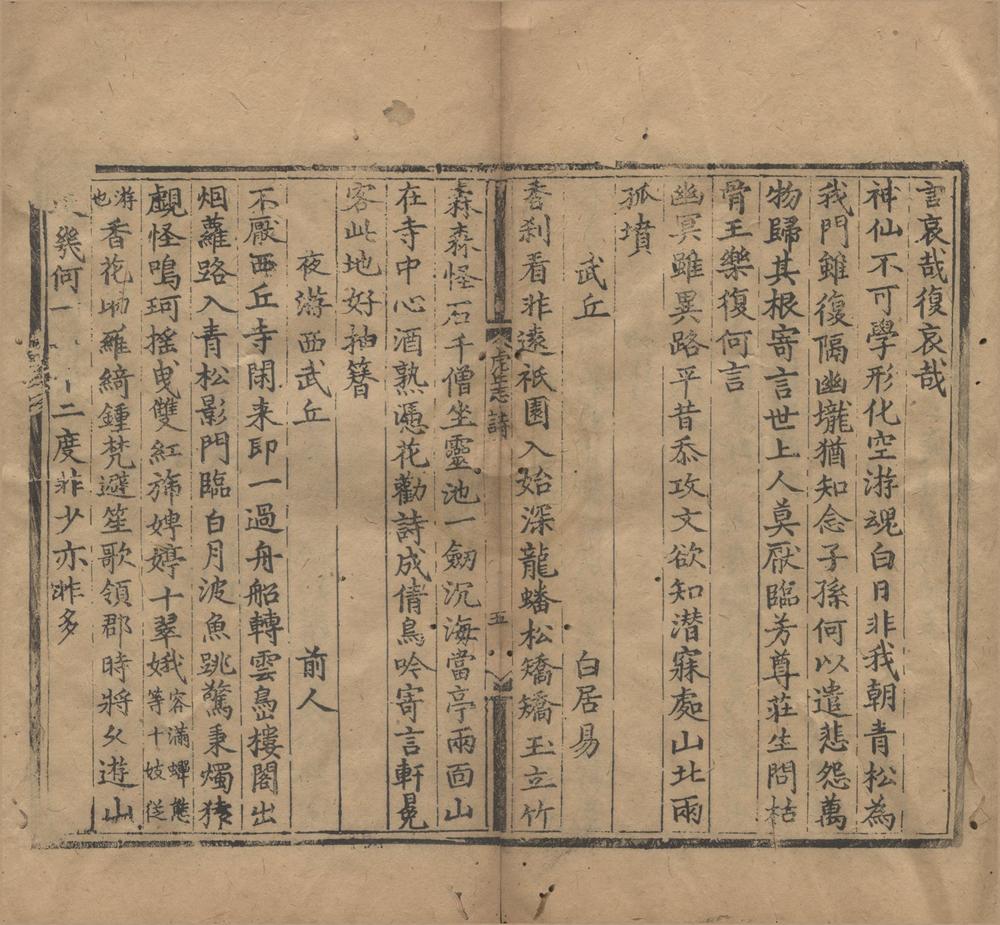 言哀哉復哀哉
神仙不可學形化空游魂白日非我朝青松為
我門雖復隔幽壠猶知念子孫何以遣悲怨萬
物歸其根寄言世上人莫厭臨芳尊莊生問枯
骨王樂復何言
幽冥雖異路平昔忝攻文欲知潜寐處山北兩
孤墳
武丘 白居易
香刹看非遠祇園入始深龍蟠松矯矯玉立竹
虎丘志 詩 五
森森怪石千僧坐靈池一劒沉海當亭兩面山
在寺中心酒熟憑花勸詩成倩鳥吟寄言軒冕
客此地好抽簪
夜游西武丘 前人
不厭西丘寺閑来即一過舟船轉雲島樓閣出
烟蘿路入青松影門臨白月波魚跳驚秉燭猿
覷怪鳴珂摇曳雙紅旆娉婷十翠娥容滿蟬態等十妓從
游也香花助羅綺鍾梵避笙歌領郡時將久遊山
幾何一 二度非少亦非多